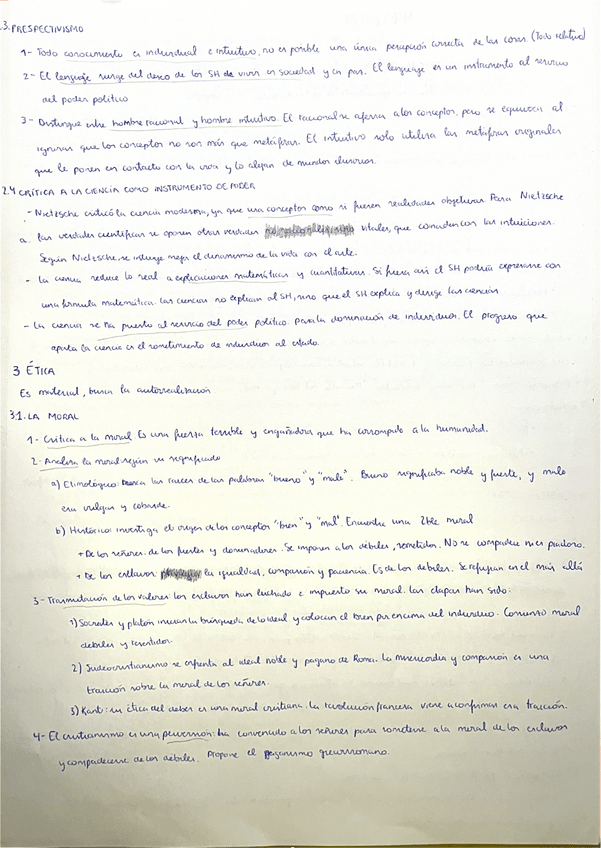 2.3. PRESPECTIVISMO
1- Todo conocimiento es individual e intuitivo, no es posible una única percepción correcta de las cosas. (Todo relativo)
2- El lenguaje surge del deseo de los SH de vivir en sociedad y en paz. El lenguaje es un instrumento al servicio
del poder político
3- Distingue entre hombre racional y hombre intuitivo. El racional se aferra a los conceptos, pero se equivoca al
ignorar que los conceptos no son más que metáforas. El intuitivo solo utiliza las metáforas originales
que le ponen en contacto con la vida y lo alejan de mundos ilusorios.
2.4 CRÍTICA A LA CIENCIA COMO INSTRUMENTO DE PODER
- Nietzsche criticó la ciencia moderna, ya que usa conceptos como si fuesen realidades objetivas. Para Nietzsche
a. las verdades científicas se oponen otras verdades vitales, que coinciden con las intuiciones.
Según Nietzsche se intuye mejor el dinamismo de la vida con el arte.
- La ciencia reduce lo real a explicaciones matemáticas y cuantitativas. Si fuera así el SH podría expresarse con
una fórmula matemática. Las ciencias no explican al SH, sino que el SH explica y dirige las ciencias
- La ciencia se ha puesto al servicio del poder político. para la dominación de individuos. El progreso que
aporta la ciencia es el sometimiento de individuos al estado.
3 ÉTICA
Es material, busca la autorrealización
3.1. LA MORAL
1- Crítica a la moral Es una fuerza terrible y engañadora que ha corrompido a la humanidad.
2- Analiza la moral según su significado
a) Etimológico: busca las raíces de las palabras "bueno" y "malo". Bueno significaba noble y fuerte, y malo
era vulgar y cobarde.
b) Histórico: investiga el origen de los conceptos "bien" y "mal". Encuentra una doble moral
+ De los señores: de los fuertes y dominadores. Se imponen a los débiles, sometidos. No se compadece ni es piadoso.
+ De los esclavos: la igualdad, compasión y paciencia. Es de los débiles. Se refugian en el más allá
3- Trasmutación de los valores: los esclavos han luchado e impuesto su moral. Las etapas han sido:
1) Sócrates y platón inician la búsqueda de lo ideal y colocan el bien por encima del individuo. Comienza moral
débiles y resentidos.
2) Judeocristianismo se enfrenta al ideal noble y pagano de Roma. La misericordia y compasión es una
traición sobre la moral de los señores.
3) Kant: su ética del deber es una moral cristiana. La revolución francesa viene a confirmar esa traición.
4- El cristianismo es una perversión: ha convencido a los señores para someterse a la moral de los esclavos
y compadecerse de los débiles. Propone el paganismo grecorromano.